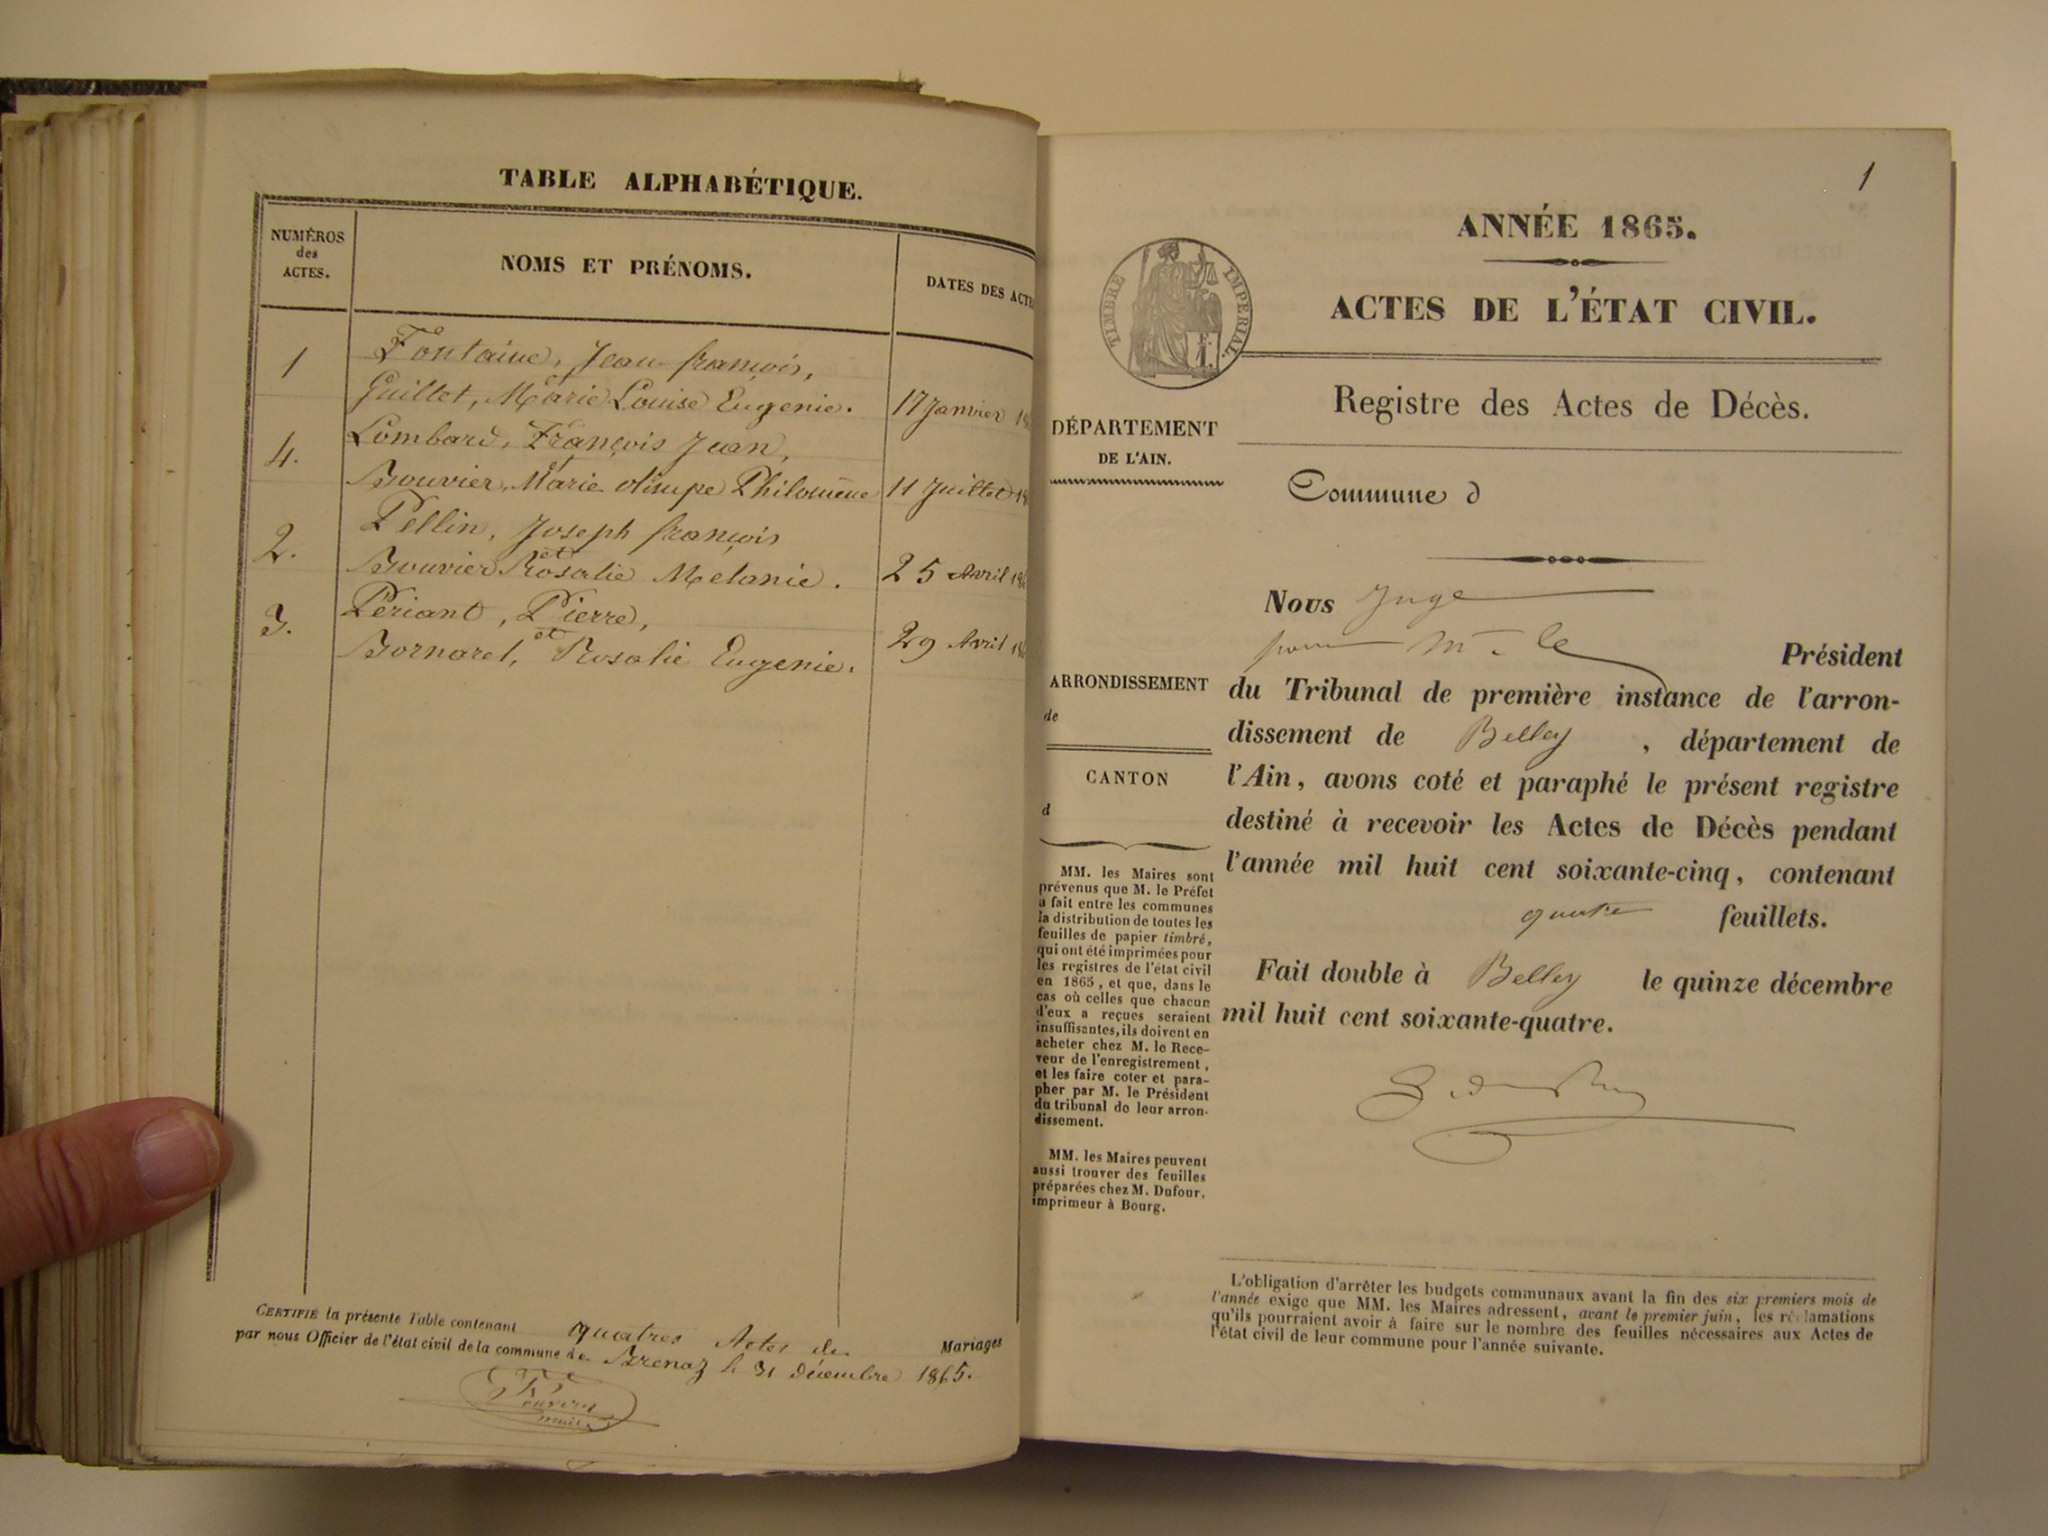 TABLE ALPHABÉTIQUE.
NUMÉROS
des
ACTES.
NOMS ET PRÉNOMS.
DATES DES ACTE
1
Fontaine, Jean françois,
et
Guillet, Marie Louise Eugenie. 17 Janvier 18
4. Lombard, François Jean,
et
Bouvier, Marie olimpe Philomène 11 Juillet 18
2. Pellin, Joseph françois
et
Bouvier Rosalie Melanie. 25 Avril 186
3. Périant, Pierre,
et
Bornarel, Rosalie Eugenie. 29 Avril 186
CERTIFIÉ la présente Table contenant quatres Actes de Mariages
par nous Officier de l'état civil de la commune de Brenaz le 31 décembre 1865.
maire
1
ANNÉE 1865.
TIMBRE IMPÉRIAL.
1 f.
ACTES DE L'ÉTAT CIVIL.
Registre des Actes de Décès.
DÉPARTEMENT
DE L'AIN.
Commune d
ARRONDISSEMENT
de
CANTON
d
MM. les Maires sont
prévenus que M. le Préfet
a fait entre les communes
la distribution de toutes les
feuilles de papier timbré,
qui ont été imprimées pour
les registres de l'état civil
en 1865, et que, dans le
cas où celles que chacun
d'eux a reçues seraient
insuffisantes, ils doivent en
acheter chez M. le Rece-
veur de l'enregistrement,
et les faire coter et para-
pher par M. le Président
du tribunal de leur arron-
dissement.
MM. les Maires peuvent
aussi trouver des feuilles
préparées chez M. Dufour,
imprimeur à Bourg.
Nous Juge
pour Mr le Président
du Tribunal de première instance de l'arron-
dissement de Belley, département de
l'Ain, avons coté et paraphé le présent registre
destiné à recevoir les Actes de Décès pendant
l'année mil huit cent soixante-cinq, contenant
quatre feuillets.
Fait double à Belley le quinze décembre
mil huit cent soixante-quatre.
L'obligation d'arrêter les budgets communaux avant la fin des six premiers mois de
l'année exige que MM. les Maires adressent, avant le premier juin, les réclamations
qu'ils pourraient avoir à faire sur le nombre des feuilles nécessaires aux Actes de
l'état civil de leur commune pour l'année suivante.